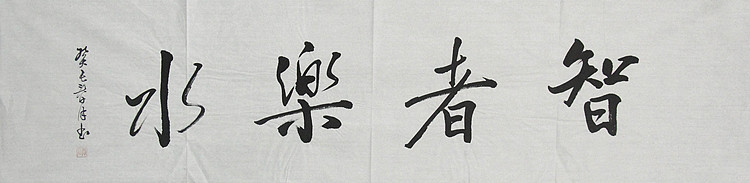 智者樂水
癸巳